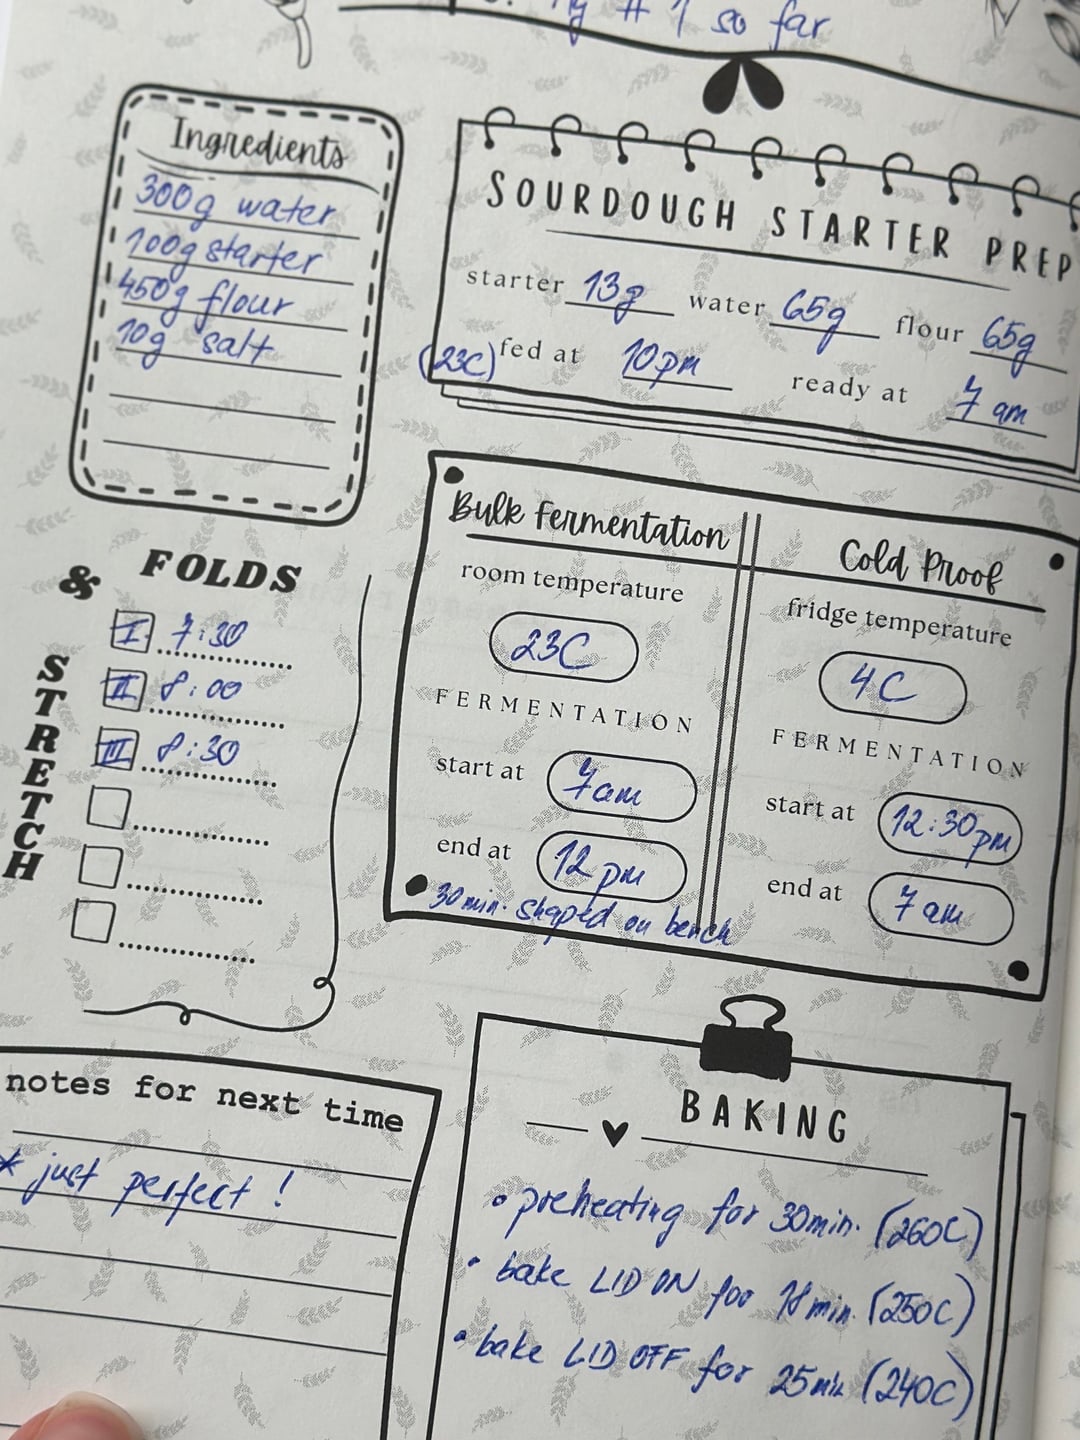 # 1 so far
Ingredients
300g water
100g starter
450g flour
10g salt
SOURDOUGH STARTER PREP
starter 13g water 65g flour 65g
(23C) fed at 10pm ready at 7 am
Bulk Fermentation
room temperature
23C
FERMENTATION
start at 7am
end at 12 pm
30 min. shaped on bench
Cold Proof
fridge temperature
4C
FERMENTATION
start at 12:30pm
end at 7 am
STRETCH & FOLDS
I 7:30
II 8:00
III 8:30
notes for next time
* just perfect !
BAKING
• preheating for 30min. (260C)
• bake LID ON for min. (250C)
• bake LID OFF for 25min (240C)